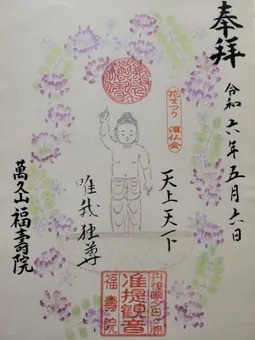 奉拝
令和六年五月六日
花まつり 灌仏会
天上天下
唯我独尊
萬久山 福壽院
准提観音
福壽院